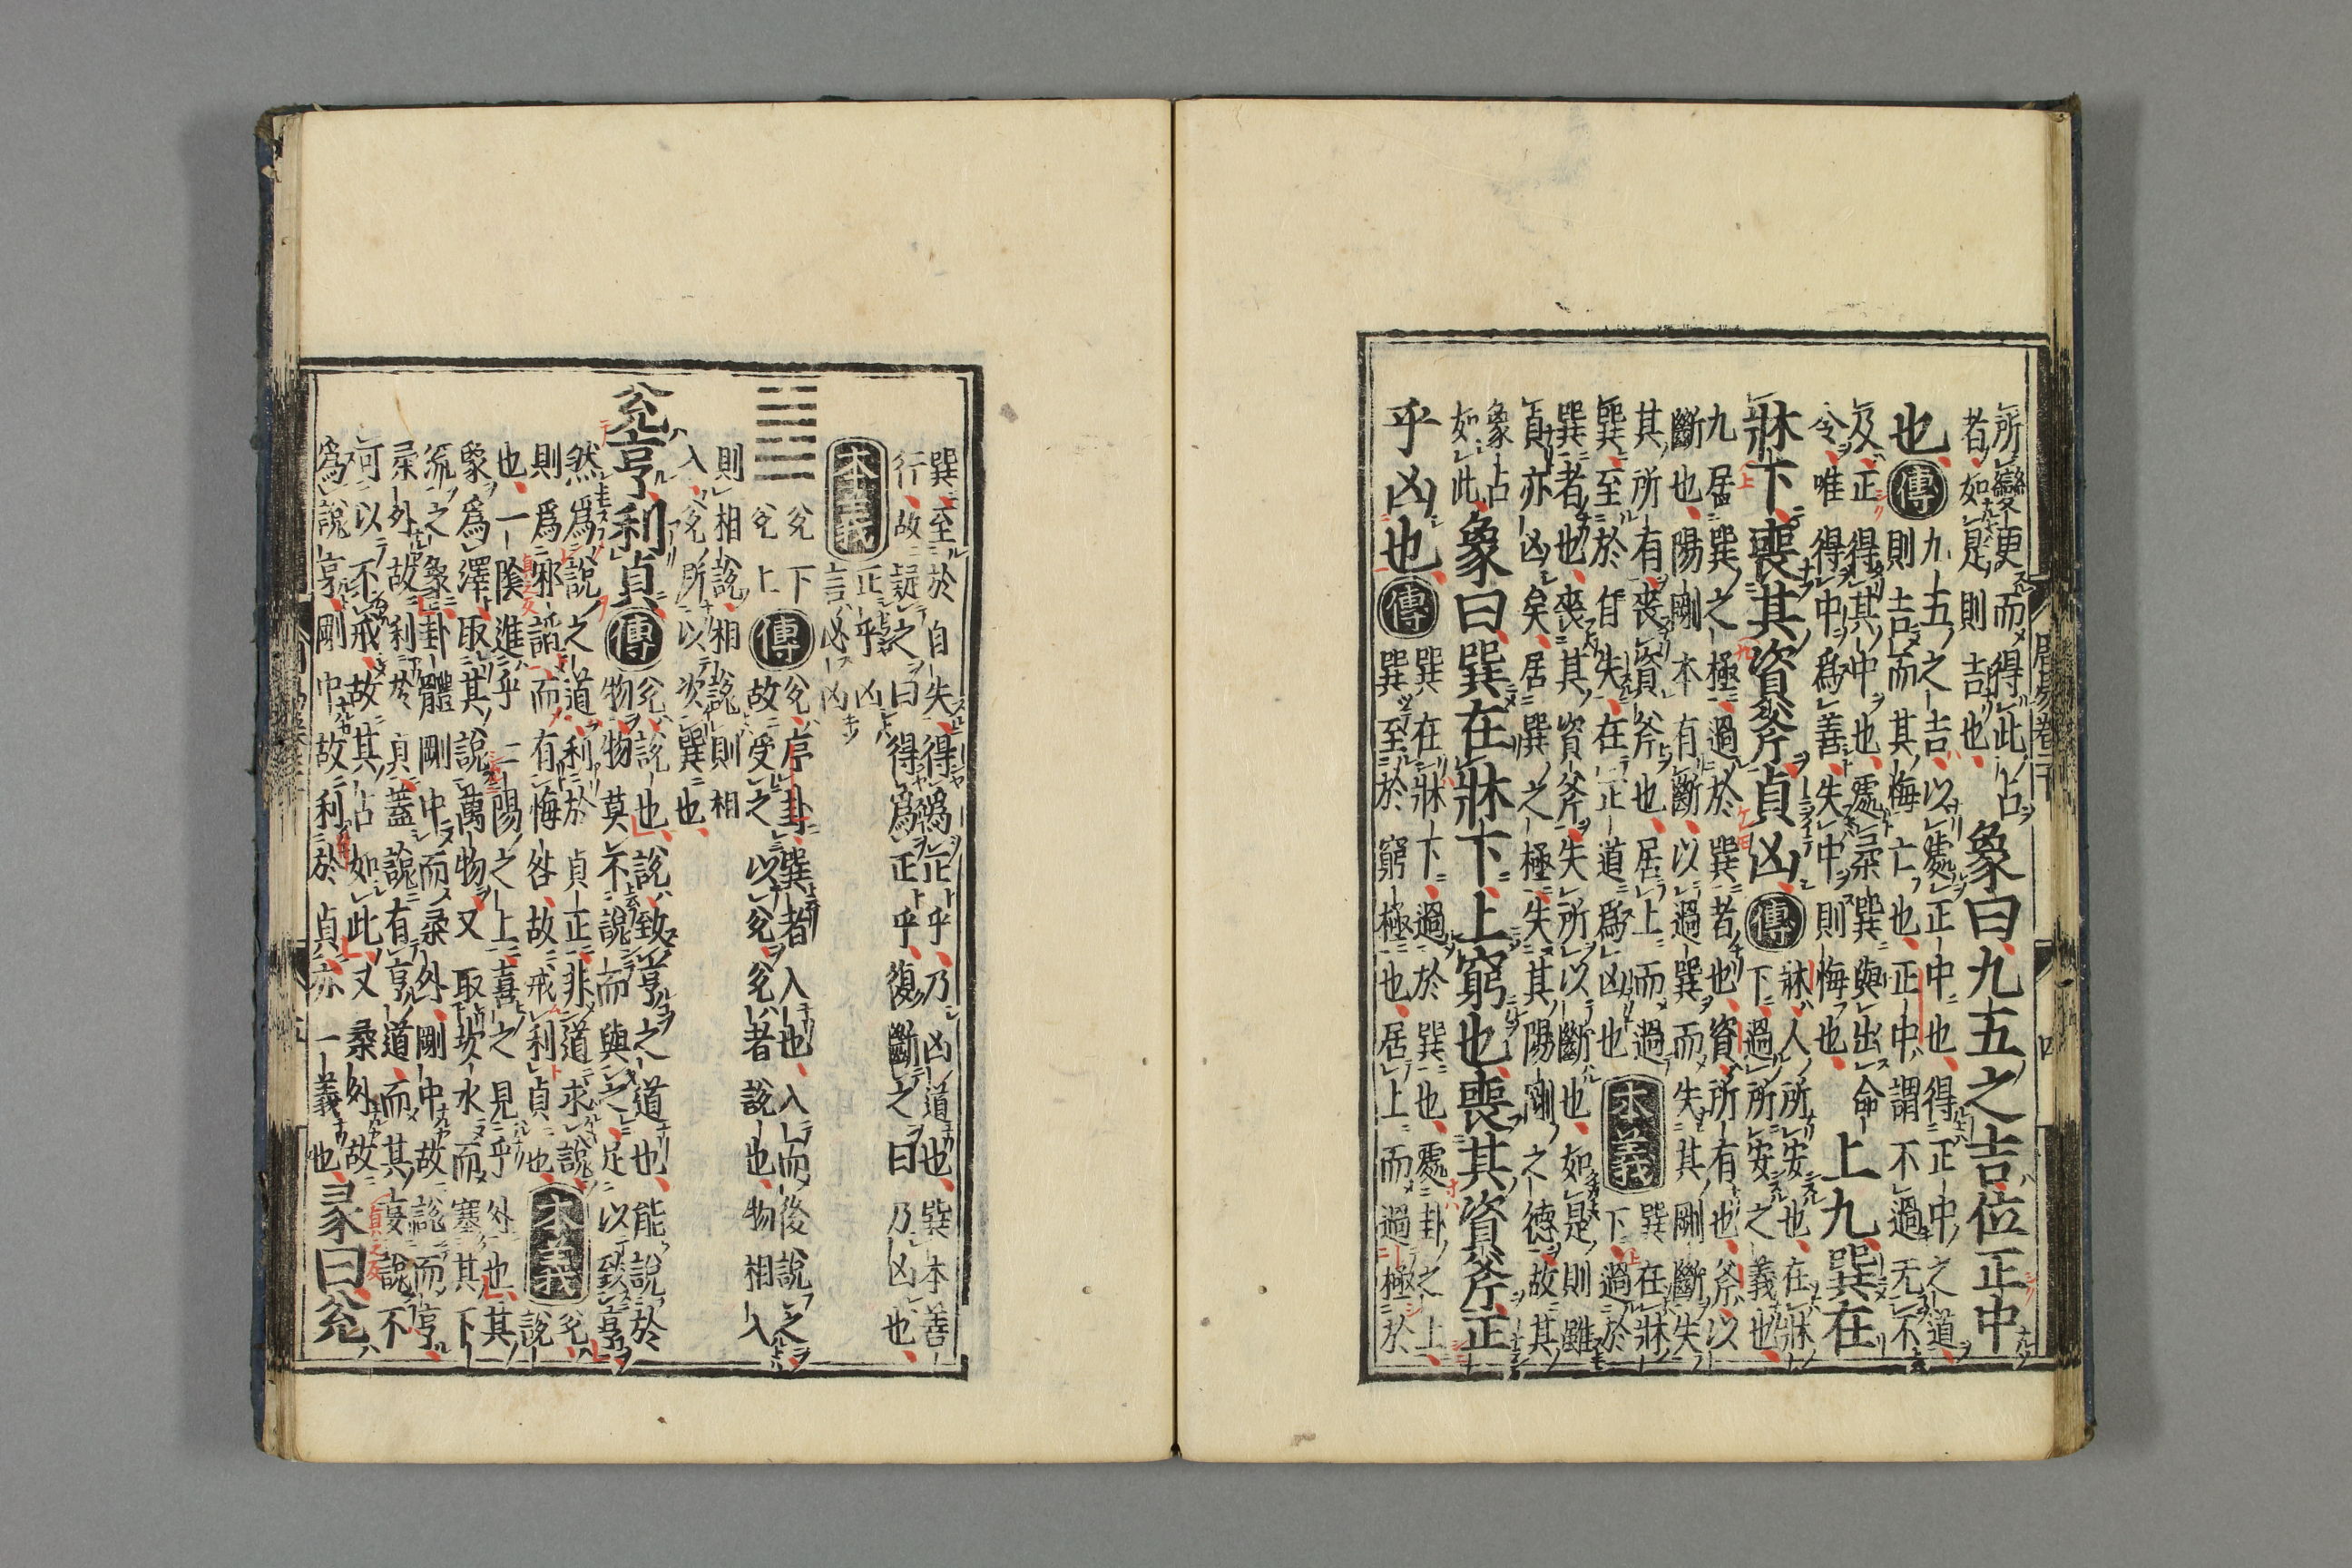 所變更而得此占
者如是則吉也
象曰九五之吉位正中
也
傳
九五之吉以處正中也得正中之道
則吉而其悔亡也正中謂不過无不
及正得其中也處柔巽與出命
令唯得中爲善失中則悔也
上九巽在
牀下喪其資斧貞凶
傳
牀人所安也在牀
下過所安之義也
九居巽之極過於巽者也資所有也斧以
斷也陽剛本有斷以過巽而失其剛斷失
其所有喪資斧也居上而過
巽至於自失在正道爲凶也
本義
巽在牀
下過於
巽者也喪其資斧失所以斷也如是則雖
貞亦凶矣居巽之極失其陽剛之德故其
象占
如此
象曰巽在牀下上窮也喪其資斧正
乎凶也
傳
巽在牀下過於巽也處卦之上
巽至於窮極也居上而過極於
巽至於自失得爲正乎乃凶道也巽本善
行故疑之曰得爲正乎復斷之曰乃凶也
本義
正乎凶
言必凶
兌下
兌上
傳
兌序卦巽者入也入而後說之
故受之以兌兌者說也物相入
則相說相說則相
入兌所以次巽也
兌亨利貞
傳
兌說也說致亨之道也能說於
物物莫不說而與之足以致亨
然爲說之道利於貞正非道求說
則爲邪諂而有悔咎故戒利貞也
本義
兌
說
也一陰進乎二陽之上喜之見乎外也其
象爲澤取其說萬物又取坎水而塞其下
流之象卦體剛中而柔外剛中故說而亨
柔外故利於貞蓋說有亨道而其妄說不
可以不戒故其占如此又柔外故
爲說亨剛中故利於貞亦一義也
彖曰兌